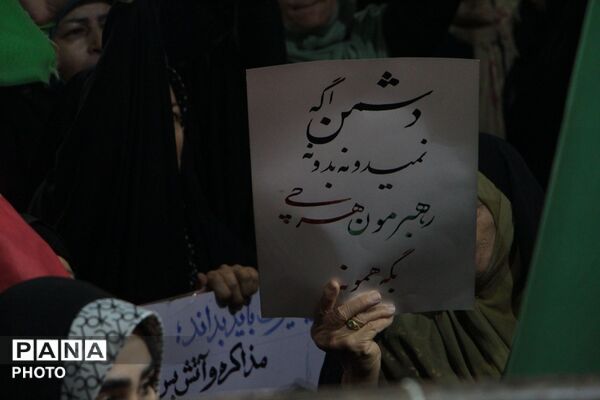 دشمن اگه
نمیدونه بدونه
رهبرمون هرچی
بگه همونه
باید بداند؛
مذاکره و آتش بس
PANA
PHOTO